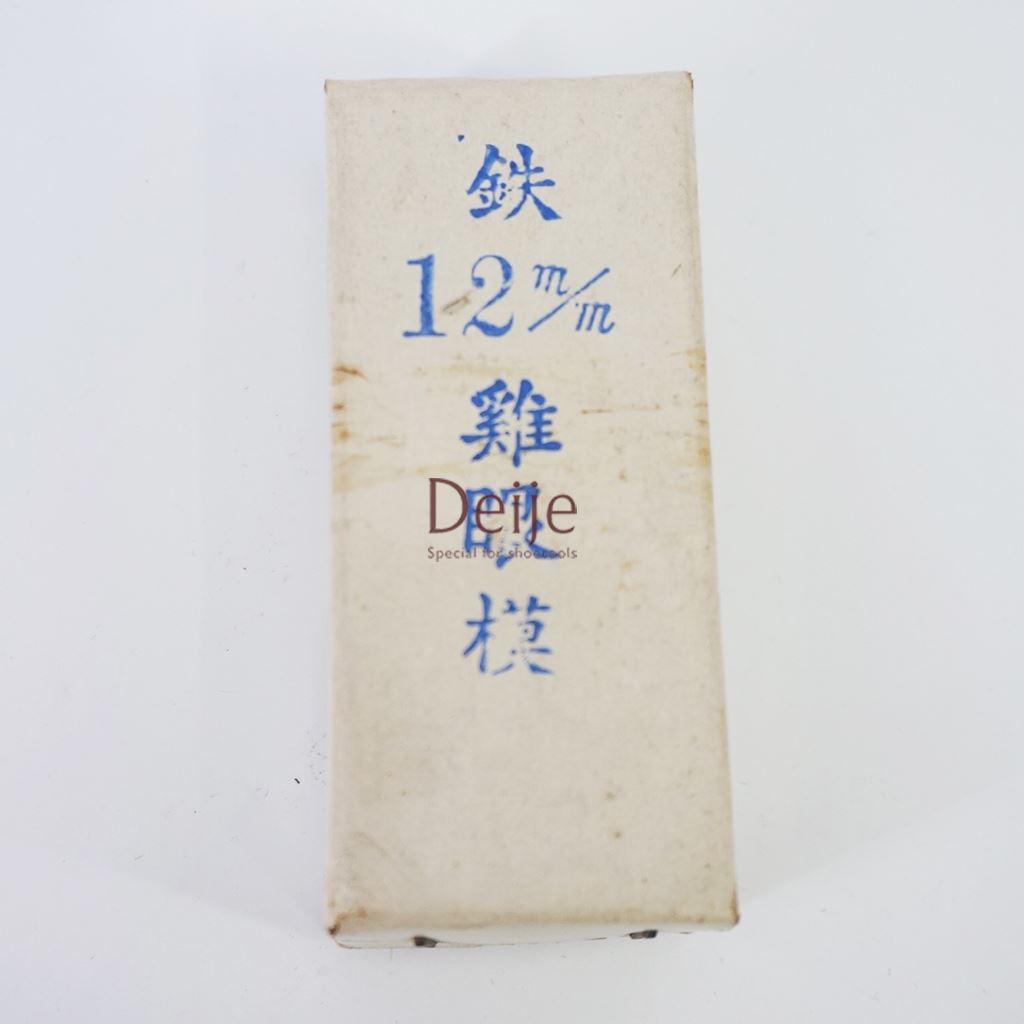 鉄
12 m/m
雞
眼
模
Deije
Special for shoetools